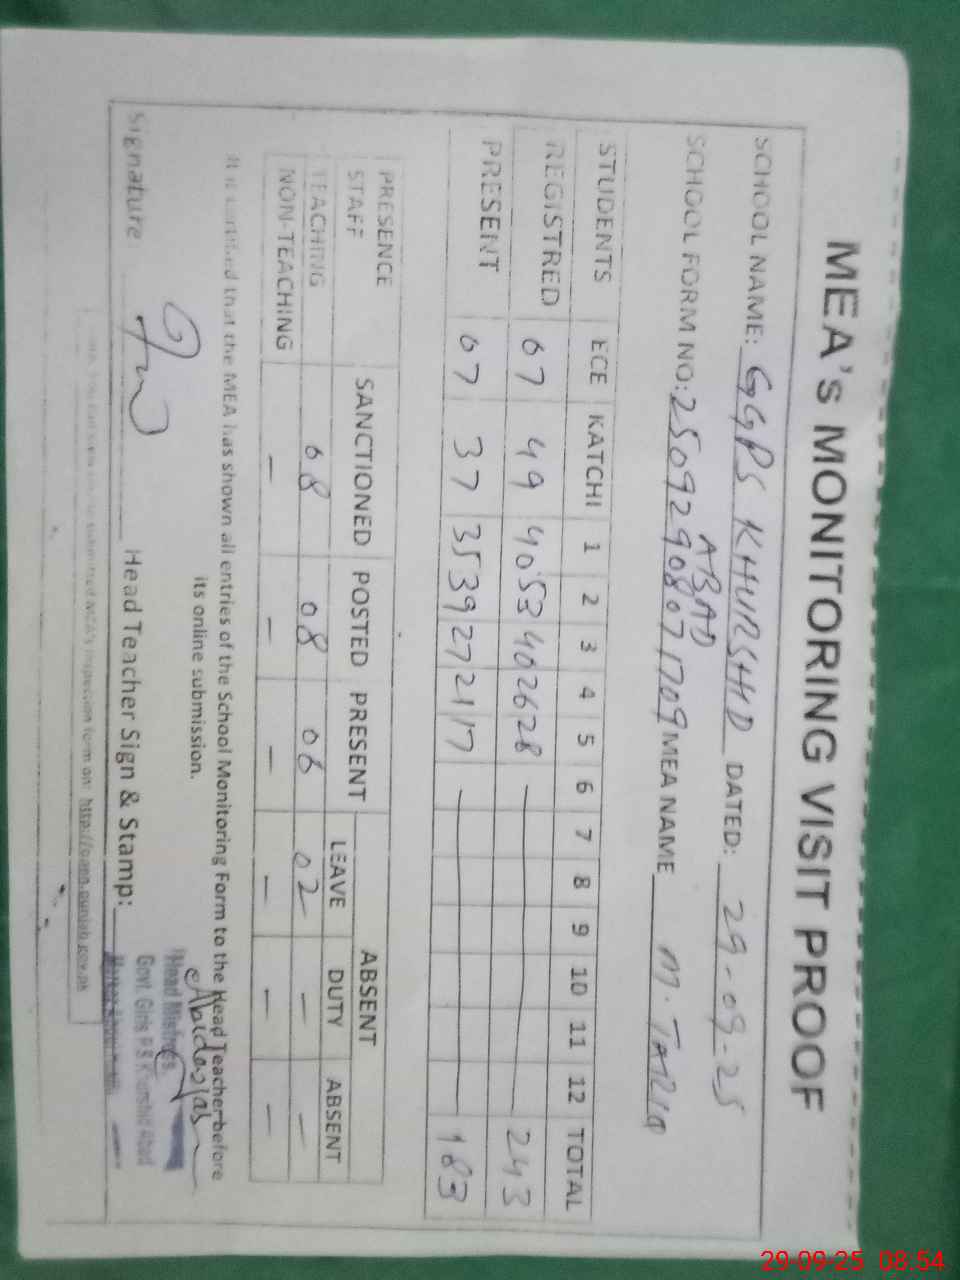 MEA's MONITORING VISIT PROOF
SCHOOL NAME: GGPS KHURSHID DATED: 29-09-25
ABAD
SCHOOL FORM NO: 25092908071709 MEA NAME M. TARIQ
STUDENTS ECE KATCHI 1 2 3 4 5 6 7 8 9 10 11 12 TOTAL
REGISTRED 07 49 40 53 40 26 28 — 243
PRESENT 07 37 35 39 27 21 17 — 183
PRESENCE SANCTIONED POSTED PRESENT ABSENT
STAFF LEAVE DUTY ABSENT
TEACHING 08 08 06 02 — —
NON-TEACHING — — — — — —
It is certified that the MEA has shown all entries of the School Monitoring Form to the Head Teacher before
its online submission.
Signature Head Teacher Sign & Stamp:
Head Mistress
Govt. Girls P.S Khurshid Abad
submitted MEA's inspection form on: http://open.punjab.gov.pk
29-09-25 08:54